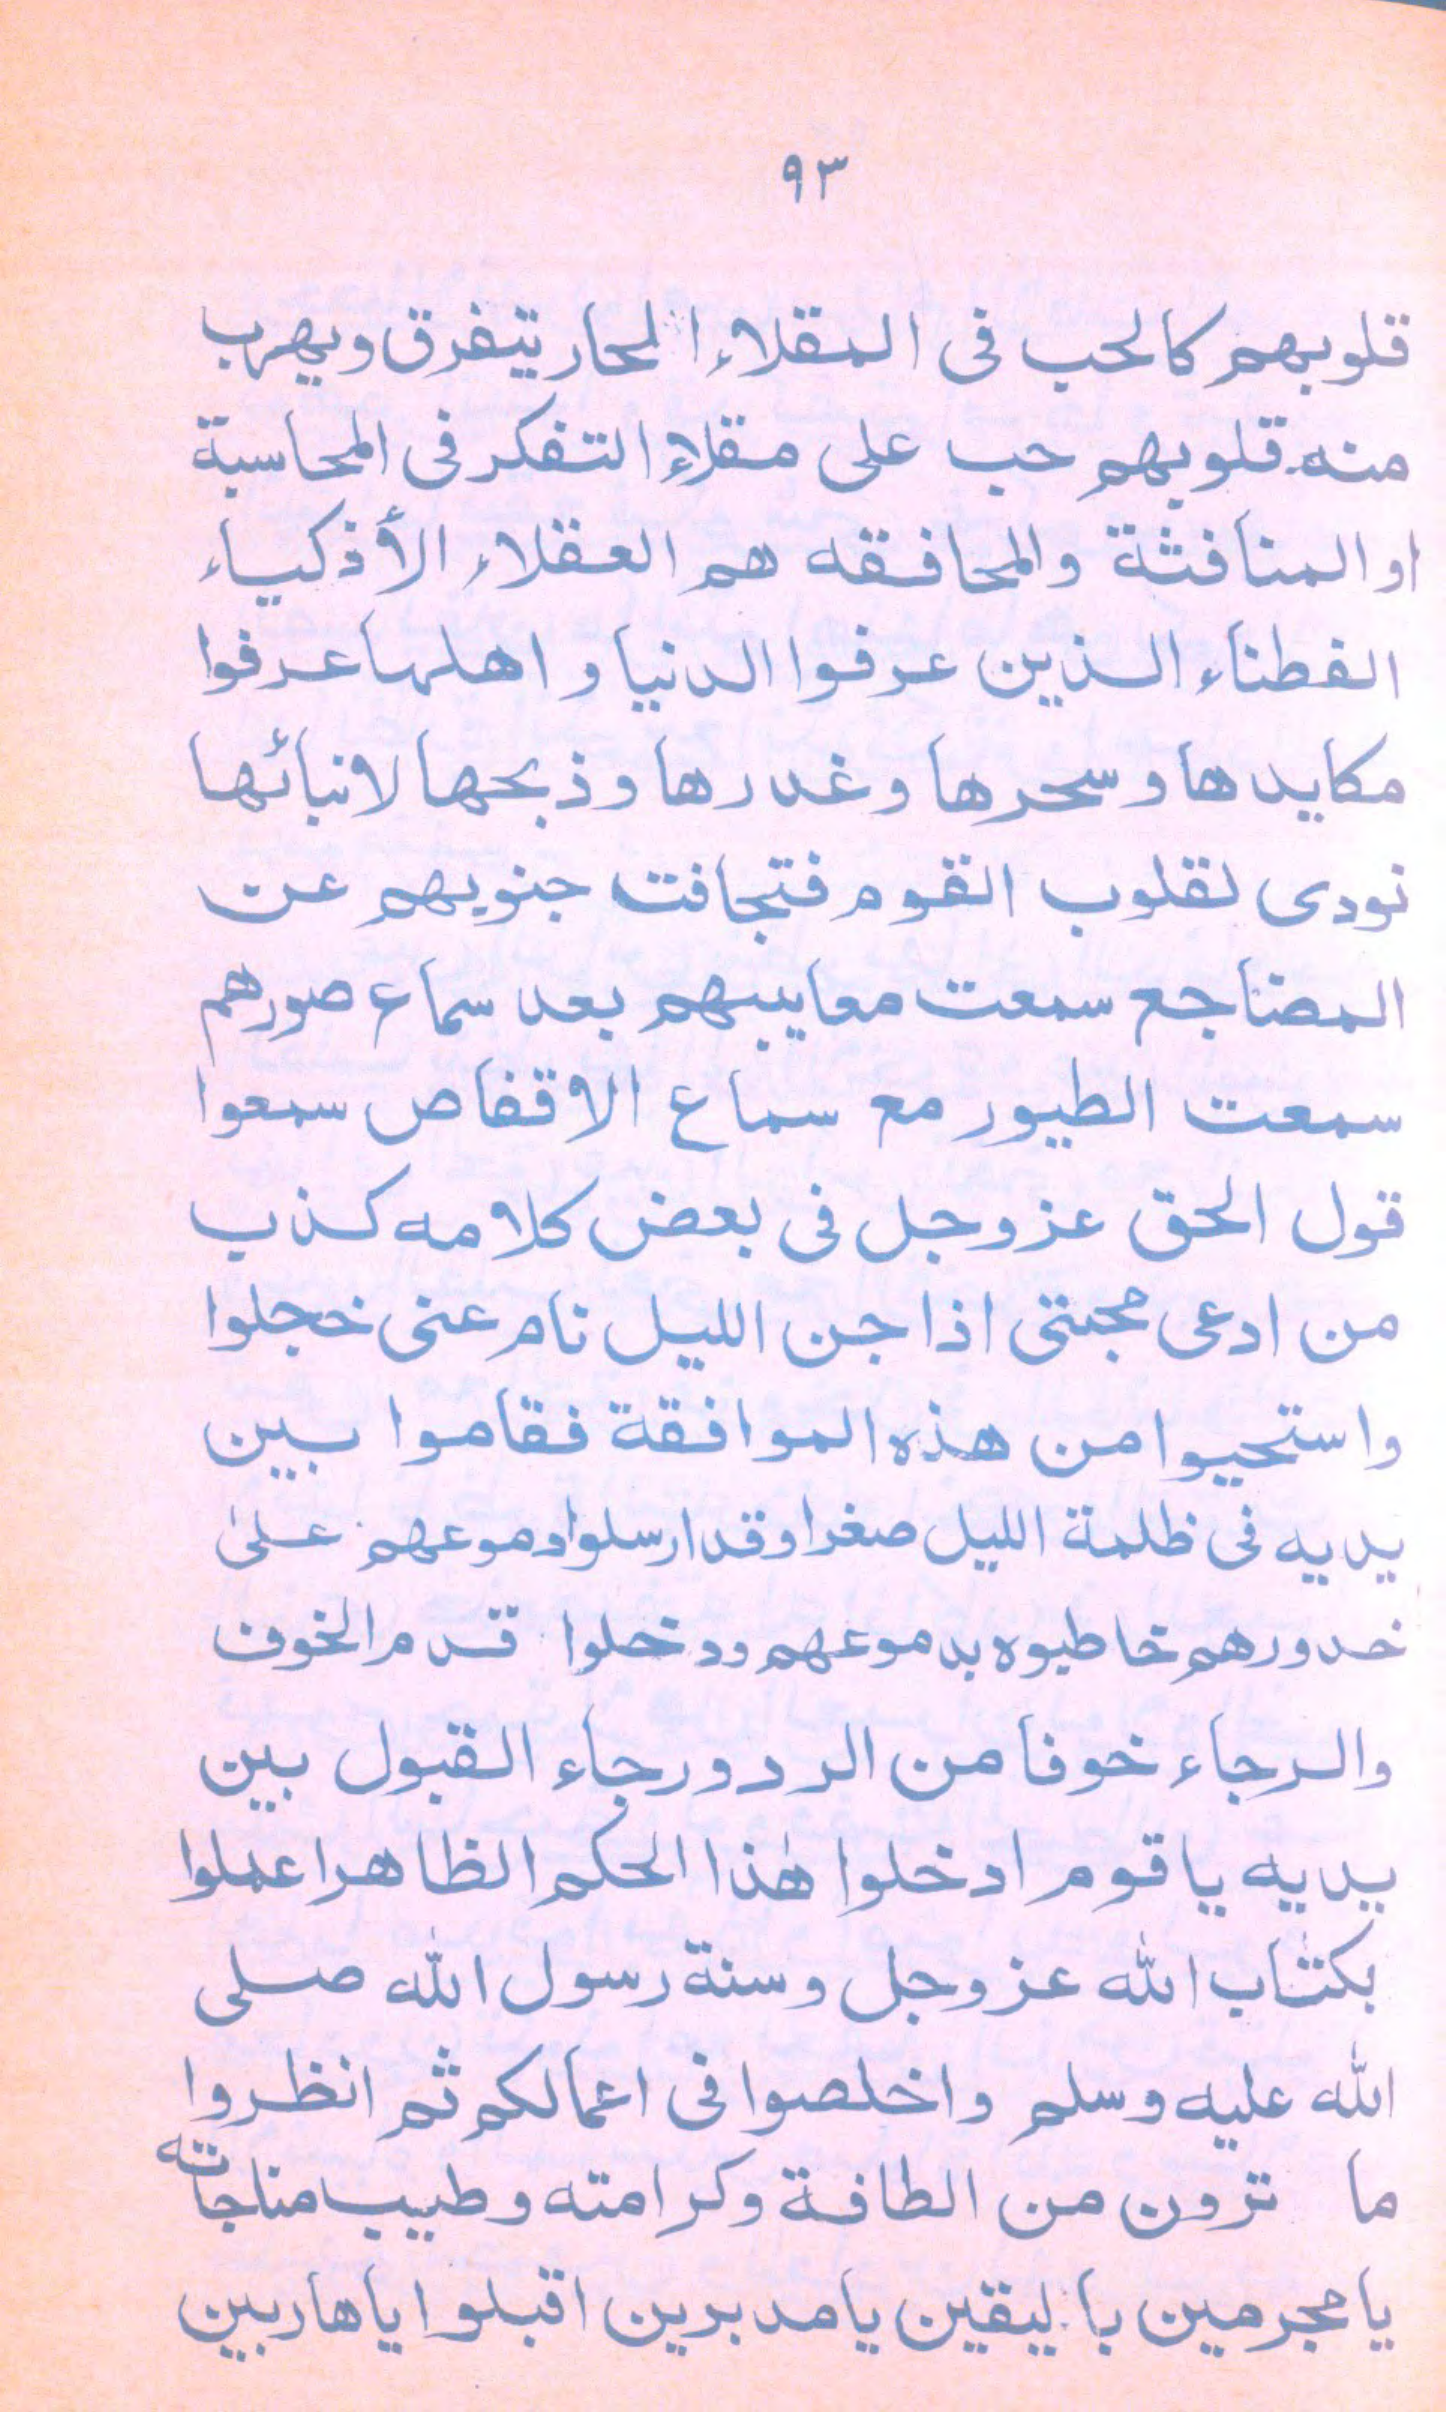 ٩٣
قلوبهم كالحب فى المقلاء المحار يتفرق ويهرب
منه قلوبهم حب على مقلاء التفكر فى المحاسبة
او المنافثة والمحافقه هم العقلاء الأذكياء
الفطناء الذين عرفوا الدنيا و اهلها عرفوا
مكايدها و سحرها و غدرها و ذبحها لانبائها
نودى لقلوب القوم فتجافت جنوبهم عن
المضاجع سمعت معاييبهم بعد سماع صورهم
سمعت الطيور مع سماع الاقفاص سمعوا
قول الحق عز وجل فى بعض كلامه كذب
من ادعى محبتى اذا جن الليل نام عنى خجلوا
واستحيوا من هذه الموافقة فقاموا بين
يديه فى ظلمة الليل صغرا وقد ارسلوا دموعهم على
خدورهم خاطبوه بدموعهم ودخلوا قدم الخوف
والرجاء خوفا من الرد ورجاء القبول بين
يديه يا قوم ادخلوا هٰذا الحكم الظاهر اعملوا
بكتٰاب الله عز وجل وسنة رسول الله صلى
الله عليه وسلم واخلصوا فى اعمالكم ثم انظروا
ما ترون من الطافة وكرامته وطيب مناجاته
يا مجرمين با ليقين يا مدبرين اقبلوا يا هاربين